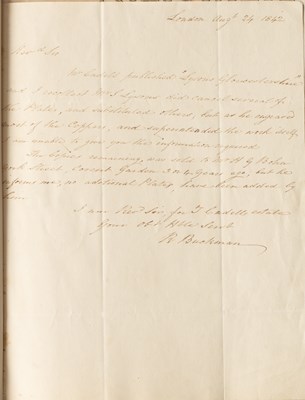 London Augt 24 1842
Revd Sir
Mr Cadell published "Lysons Gloucestershire"
and I recollect Mr S Lysons did cancel several of
the Plates, and substituted others, but as he engraved
most of the Coppers, and superintended the work itself,
I am unable to give you the information required.
The Copies remaining, was sold to Mr H G Bohn
York Street, Covent Garden 3 or 4 years ago, but he
informs me, no additional Plates have been added by
him.
I am Revd Sir, for T Cadell's estate
Your Obt Hble Servt
R Buckman